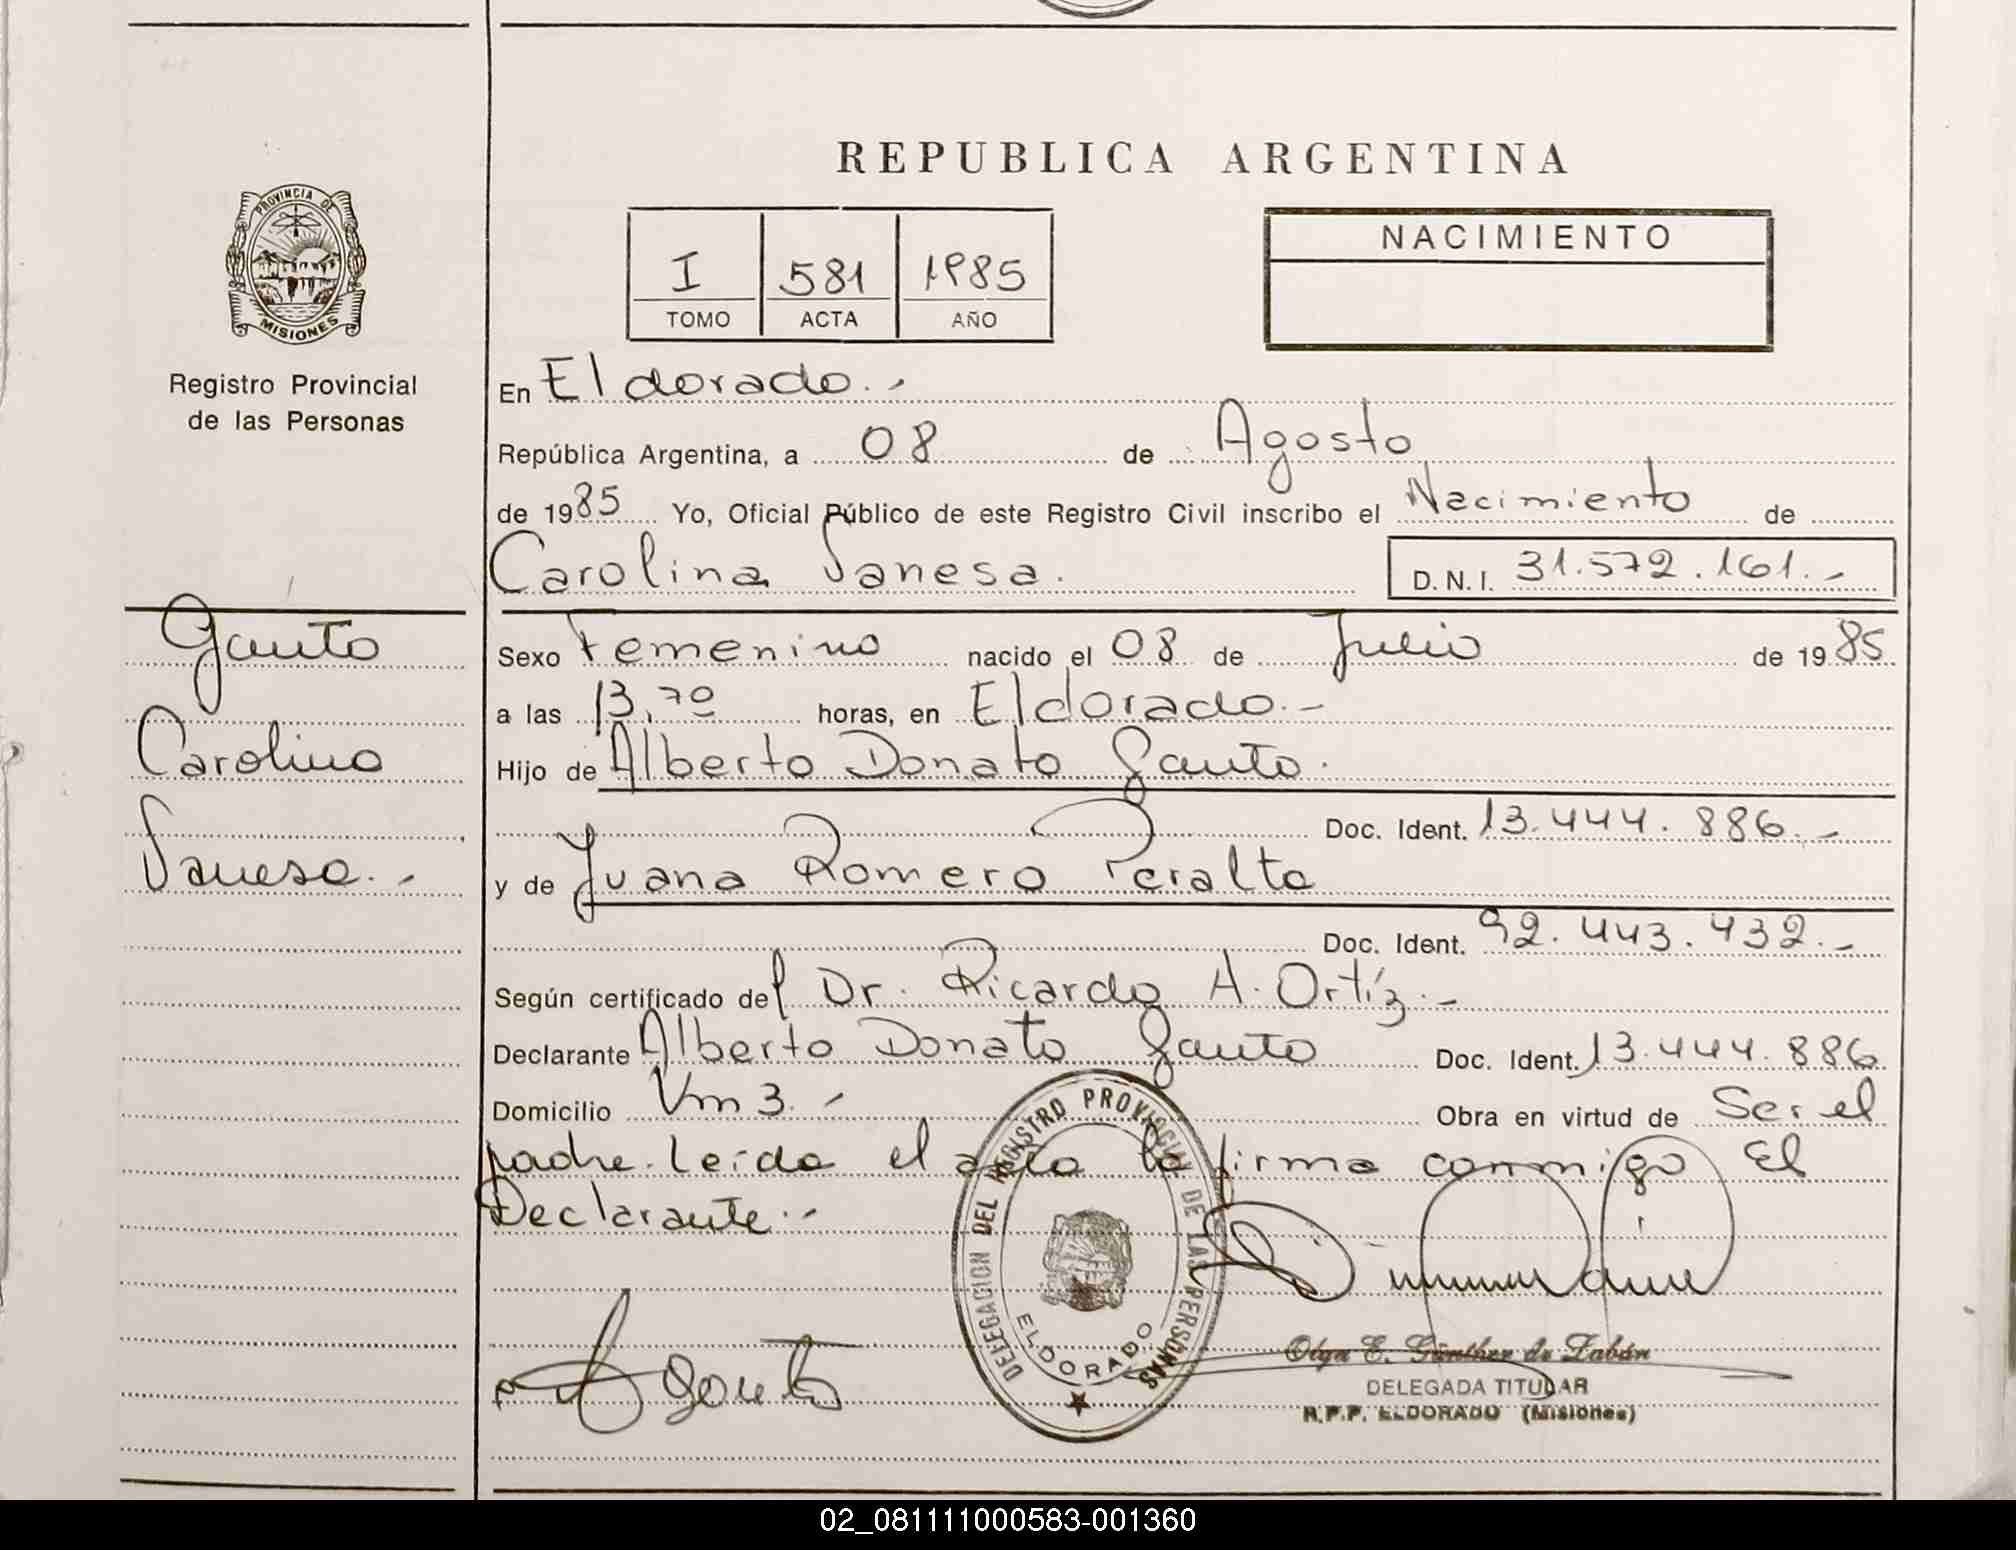 REPUBLICA ARGENTINA
PROVINCIA DE
MISIONES
Registro Provincial
de las Personas
I 581 1985
TOMO ACTA AÑO
NACIMIENTO
En Eldorado.-
República Argentina, a 08 de Agosto
de 1985 Yo, Oficial Público de este Registro Civil inscribo el Nacimiento de
Carolina Vanesa.
D.N.I. 31.572.161.-
Gauto
Carolina
Vanesa.-
Sexo Femenino nacido el 08 de Julio de 1985
a las 13, horas, en Eldorado.-
Hijo de Alberto Donato Gauto.
Doc. Ident. 13.444.886.-
y de Juana Romero Peralta
Doc. Ident. 92.443.432.-
Según certificado del Dr. Ricardo A. Ortíz.-
Declarante Alberto Donato Gauto Doc. Ident. 13.444.886
Domicilio Vm 3.- Obra en virtud de Ser el
padre. Leída el acta la firma conmigo El
Declarante.-
DELEGACION DEL REGISTRO PROVINCIAL DE LAS PERSONAS
ELDORADO
Gauto
Olga E. Günther de Zabán
DELEGADA TITULAR
R.P.P. ELDORADO (Misiones)
02_081111000583-001360